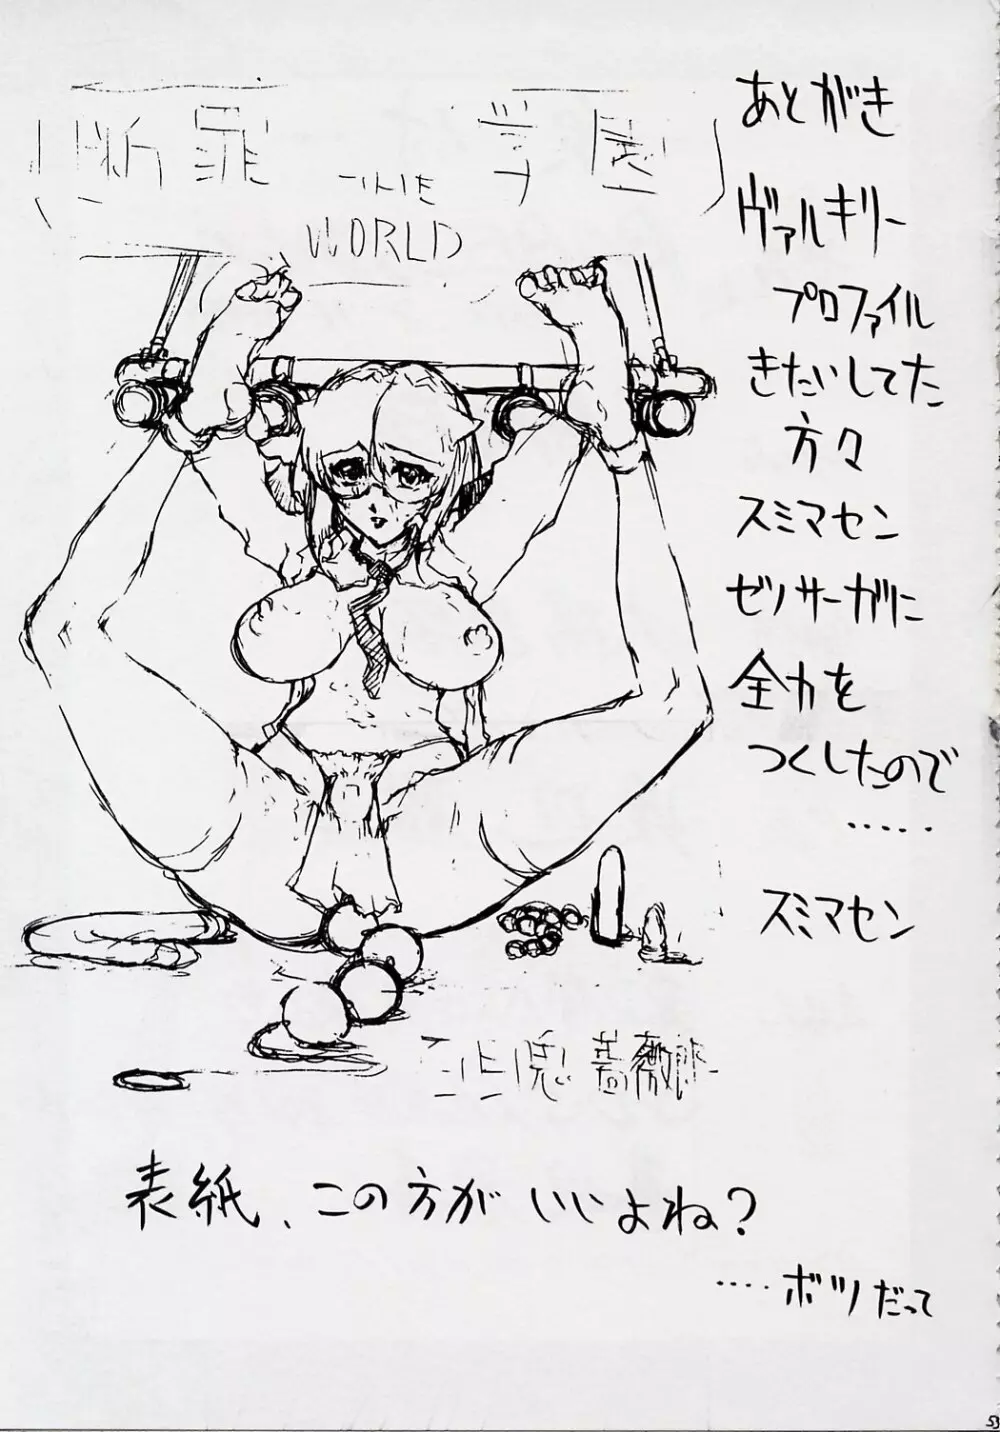 断罪 学園
THE
WORLD
あとがき
ヴァルキリー
プロファイル
きたいしてた
方々
スミマセン
ゼノサーガに
全力を
つくしたので
.....
スミマセン
表紙、この方がいいよね?
....ボツだって
53